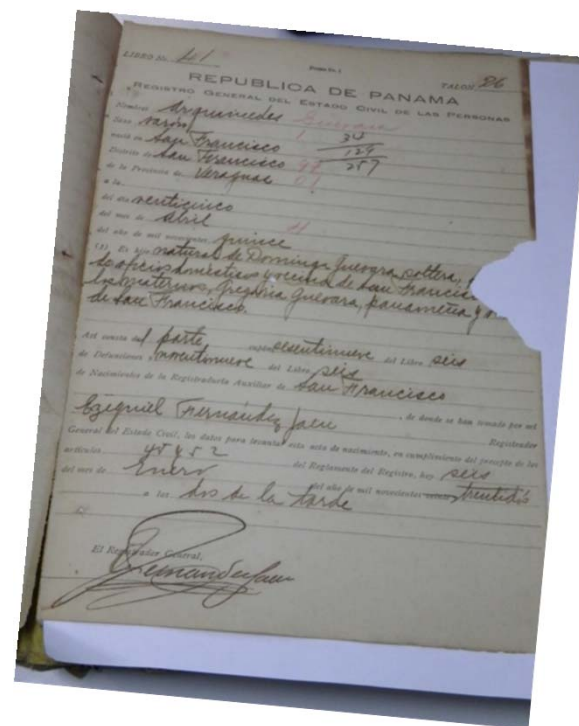 LIBRO No. 41 TALON 26
REPUBLICA DE PANAMA
REGISTRO GENERAL DEL ESTADO CIVIL DE LAS PERSONAS
Nombre Arquimedes Guevara
Sexo varón 1 34
nació en San Francisco 129
Distrito de San Francisco 257
de la Provincia de Veraguas
a la
del día venticinco
del mes de Abril
del año de mil novecientos quince
(1) Es hijo natural de Dominga Guevara, soltera,
de oficios domésticos y vecina de San Francisco
Gregoria Guevara, panameña y
de San Francisco.
Así consta del parte del Libro seis
de Defunciones noventinueve del Libro seis
de Nacimientos de la Registraduría Auxiliar de San Francisco
Ezequiel Fernández Jaén, de donde se han tomado por mí
Registrador
General del Estado Civil, los datos para levantar esta acta de nacimiento, en cumplimiento del precepto de los
artículos 45 y 52 del Reglamento del Registro, hoy seis
del mes de Enero del año de mil novecientos trentidós
a las dos de la tarde
El Registrador General,
Fernández Jaén